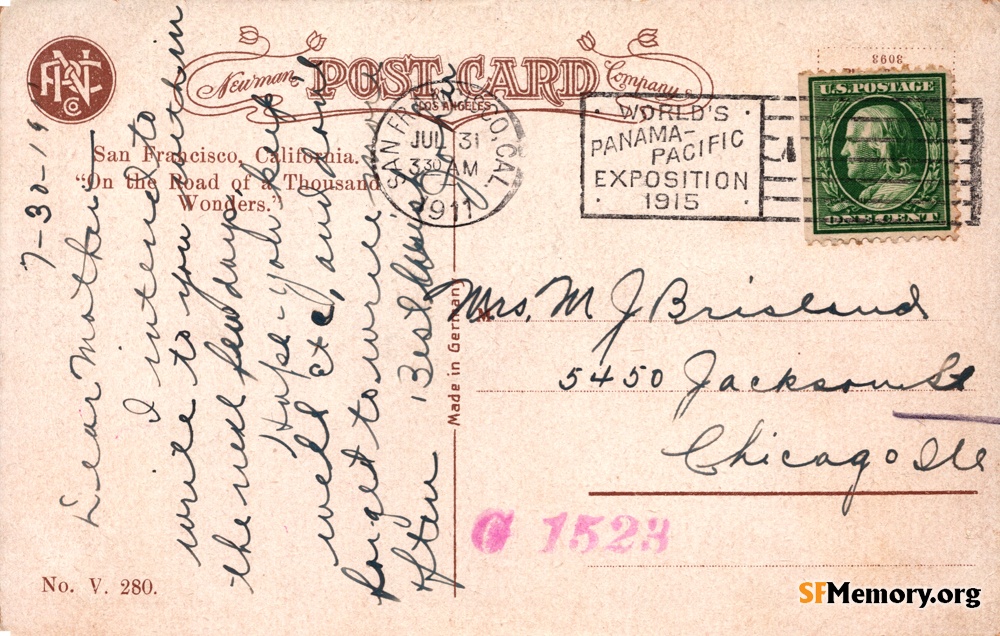 PNC
Co
Newman POST CARD Company
LOS ANGELES
8093
San Francisco, California.
"On the Road of a Thousand
Wonders."
SAN FRANCISCO, CAL.
JUL 31
3 30 AM
1911
WORLD'S
PANAMA-
PACIFIC
EXPOSITION
1915
U.S. POSTAGE
ONE CENT
7-30-19
Dear Mother
I intend to
write to you
the next few days
Hope you keep
well etc, and dont
forget to write
often Best
Made in Germany
Mrs. M J Brisland
5450 Jackson St
Chicago Ill
G 1523
No. V. 280.
SFMemory.org